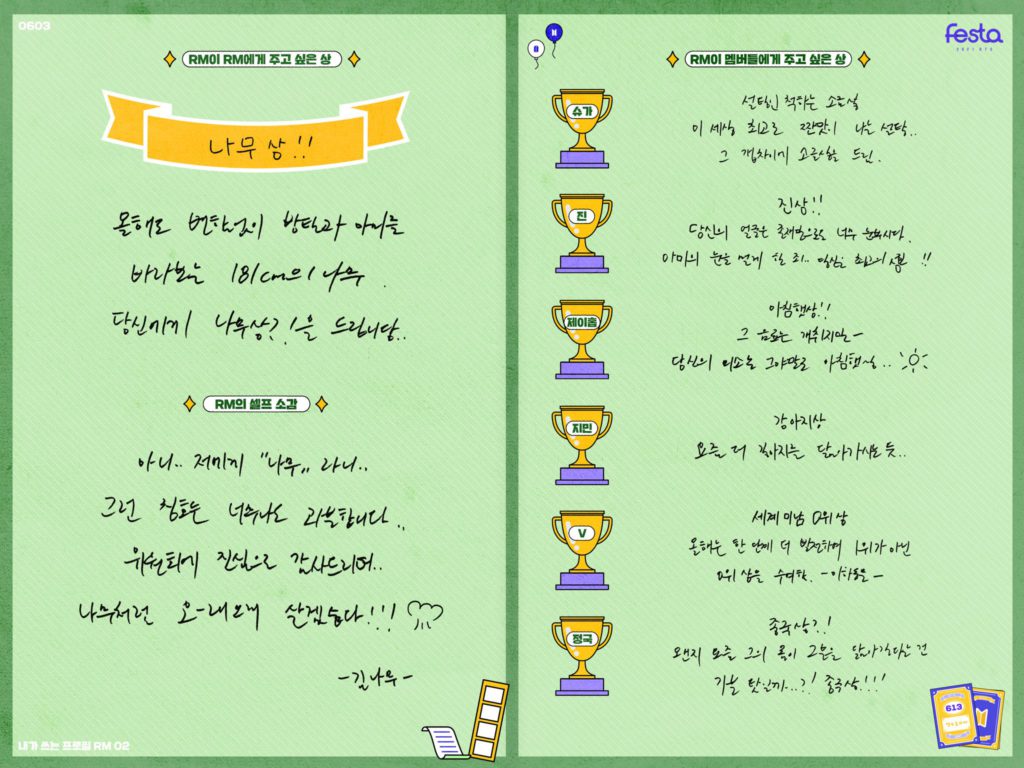 0603
RM이 RM에게 주고 싶은 상
나무상!!
올해도 변함없이 방탄과 아미를
바라보는 181cm의 나무.
당신에게 나무상?!을 드립니당..
RM의 셀프 소감
아니.. 저에게 "나무" 라니..
그런 칭호는 너무나도 과분합니다..
위원회에 진심으로 감사드리며..
나무처럼 오-래오래 살겠습니다!!!
-김나무-
내가 쓰는 프로필 RM 02
festa
2021 BTS
RM이 멤버들에게 주고 싶은 상
슈가
선티인 척하는 소금실
이 세상 최고로 짠맛이 나는 선탁..
그 갭차이에 소금상을 드린.
진
진상!!
당신의 얼굴은 존재만으로도 너무 눈부시다.
아미의 눈을 멀게 한 죄.. 당신은 최고의 !!
제이홉
아침햇살!!
그 음료는 개취지만-
당신의 미소는 그야말로 아침햇살..
지민
강아지상
요즘 더 강아지를 닮아가시는 듯..
V
세계 미남 0위 상
올해는 한 단계 더 발전하여 1위가 아닌
0위 상을 수여함. -이하동문-
정국
종국상?!
왠지 요즘 그의 몸이 그분을 닮아간다는 건
기분 탓일까...?! 종국상!!!
613